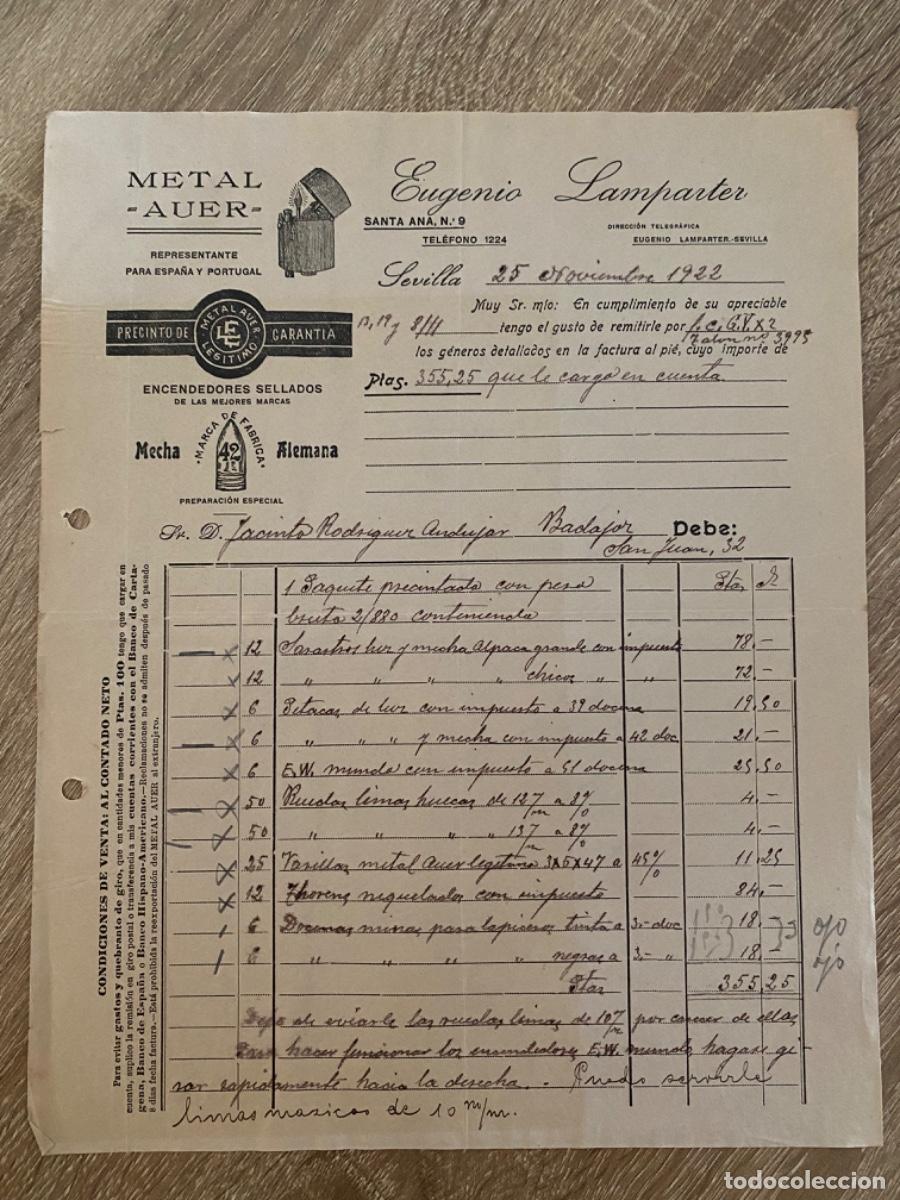 METAL
-AUER-
REPRESENTANTE
PARA ESPAÑA Y PORTUGAL
Eugenio Lamparter
SANTA ANA, N.º 9
TELÉFONO 1224
DIRECCIÓN TELEGRÁFICA
EUGENIO LAMPARTER.-SEVILLA
Sevilla 25 Noviembre 1922
PRECINTO DE GARANTIA
METAL AUER
LE
LEGITIMO
Muy Sr. mío: En cumplimiento de su apreciable
13, 19 y 8/11 tengo el gusto de remitirle por f.c.G.V. x 2
Talon nº 3975
los géneros detallados en la factura al pié, cuyo importe de
Ptas. 355,25 que le cargo en cuenta
ENCENDEDORES SELLADOS
DE LAS MEJORES MARCAS
MARCA DE FABRICA
Mecha 42 Alemana
PREPARACIÓN ESPECIAL
Sr. D. Jacinto Rodriguez Andujar Badajoz Debe:
San Juan, 32
1 Paquete precintado con peso Ptas
bruto 2/880 conteniendo
12 Sarastros luz y mecha Alpaca grande con impuesto 78.-
12 " " " " chicos " " 72.-
6 Petacas de luz con impuesto a 39 docena 19.50
6 " " " y mecha con impuesto a 42 doc 21.-
6 E.W. mundo con impuesto a 51 docena 25.50
50 Ruedas limas huecas de 12 m/m a 8% 4.-
50 " " " " 13 m/m a 8% 4.-
25 Varillas metal Auer legitimo 3x5x47 a 45% 11.25
12 Thorens niquelados con impuesto 84.-
6 Docenas minas para lapiceros tinta a 3.- doc 18.-
6 " " " " negras a 3.- " 18.-
Ptas 355,25
Dejo de enviarle las ruedas limas de 10 m/m por carecer de ellas
Para hacer funcionar los encendedores E.W. mundo, hagase gi-
rar rapidamente hacia la derecha. - Puedo servirle
limas macicas de 10 m/m.
CONDICIONES DE VENTA: AL CONTADO NETO
Para evitar gastos y quebranto de giro, que en cantidades menores de Ptas. 100 tengo que cargar en
cuenta, suplico la remisión en giro postal o transferencia a mis cuentas corrientes con el Banco de Carta-
gena, Banco de España o Banco Hispano-Americano.—Reclamaciones no se admiten después de pasado
8 días fecha factura.—Está prohibida la reexportación del METAL AUER al extranjero.
todocoleccion